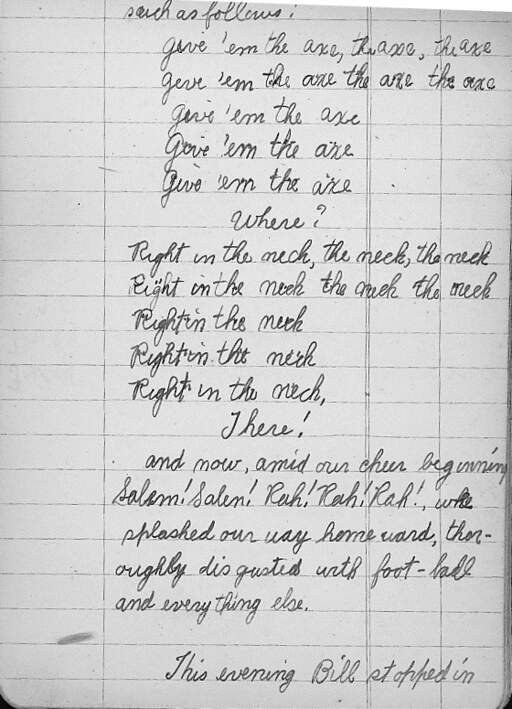 such as follows:
Give 'em the axe, the axe, the axe
Give 'em the axe the axe the axe
Give 'em the axe
Give 'em the axe
Give 'em the axe
Where?
Right in the neck, the neck, the neck
Right in the neck the neck the neck
Right in the neck
Right in the neck
Right in the neck,
There!
and now, amid our cheer beginning
Salem! Salem! Rah! Rah! Rah!, we
splashed our way homeward, thor-
oughly disgusted with foot-ball
and everything else.
This evening Bill stopped in